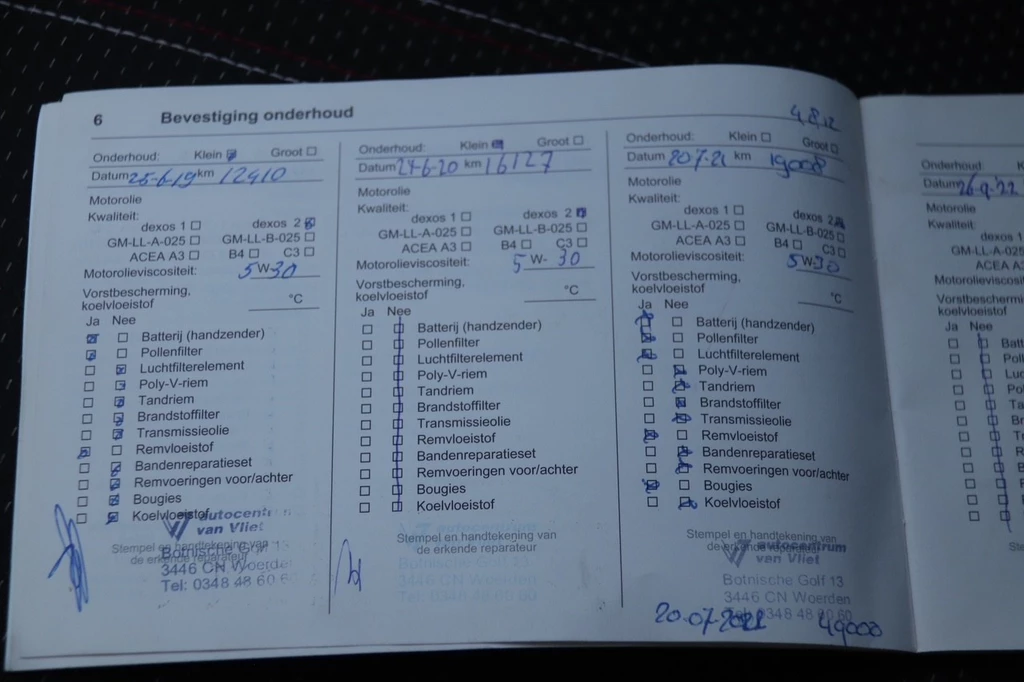 6 Bevestiging onderhoud
Onderhoud: Klein Groot
Datum 25-6-19 km 12410
Motorolie
Kwaliteit:
dexos 1 dexos 2
GM-LL-A-025 GM-LL-B-025
ACEA A3 B4 C3
Motorolieviscositeit: 5W30
Vorstbescherming,
koelvloeistof °C
Ja Nee
Batterij (handzender)
Pollenfilter
Luchtfilterelement
Poly-V-riem
Tandriem
Brandstoffilter
Transmissieolie
Remvloeistof
Bandenreparatieset
Remvoeringen voor/achter
Bougies
Koelvloeistof
autocentrum
van Vliet
Stempel en handtekening van
de erkende reparateur
Botnische Golf 1
3446 CN Woerden
Tel: 0348 48 60 6
Onderhoud: Klein Groot
Datum 24-6-20 km 16127
Motorolie
Kwaliteit:
dexos 1 dexos 2
GM-LL-A-025 GM-LL-B-025
ACEA A3 B4 C3
Motorolieviscositeit: 5W-30
Vorstbescherming,
koelvloeistof °C
Ja Nee
Batterij (handzender)
Pollenfilter
Luchtfilterelement
Poly-V-riem
Tandriem
Brandstoffilter
Transmissieolie
Remvloeistof
Bandenreparatieset
Remvoeringen voor/achter
Bougies
Koelvloeistof
autocentrum
Stempel en handtekening van
de erkende reparateur
Botnische Golf 13
3446 CN Woerden
Tel: 0348 48 60 60
4,8,12
Onderhoud: Klein Groot
Datum 20 7-21 km 19008
Motorolie
Kwaliteit:
dexos 1 dexos 2
GM-LL-A-025 GM-LL-B-025
ACEA A3 B4 C3
Motorolieviscositeit: 5W30
Vorstbescherming,
koelvloeistof °C
Ja Nee
Batterij (handzender)
Pollenfilter
Luchtfilterelement
Poly-V-riem
Tandriem
Brandstoffilter
Transmissieolie
Remvloeistof
Bandenreparatieset
Remvoeringen voor/achter
Bougies
Koelvloeistof
Stempel en handtekening van
de erkende reparateur
autocentrum
van Vliet
Botnische Golf 13
3446 CN Woerden
Tel: 0348 48 60 60
20-07-2021
Onderhoud: Kl
Datum 26-9-'22
Motorolie
Kwaliteit:
dexos 1
GM-LL-A-025
ACEA A3
Motorolieviscosit
Vorstbeschermin
koelvloeistof
Ja Nee
Batt
Poll
Luc
Po
Ta
Br
Tr
R
B
R